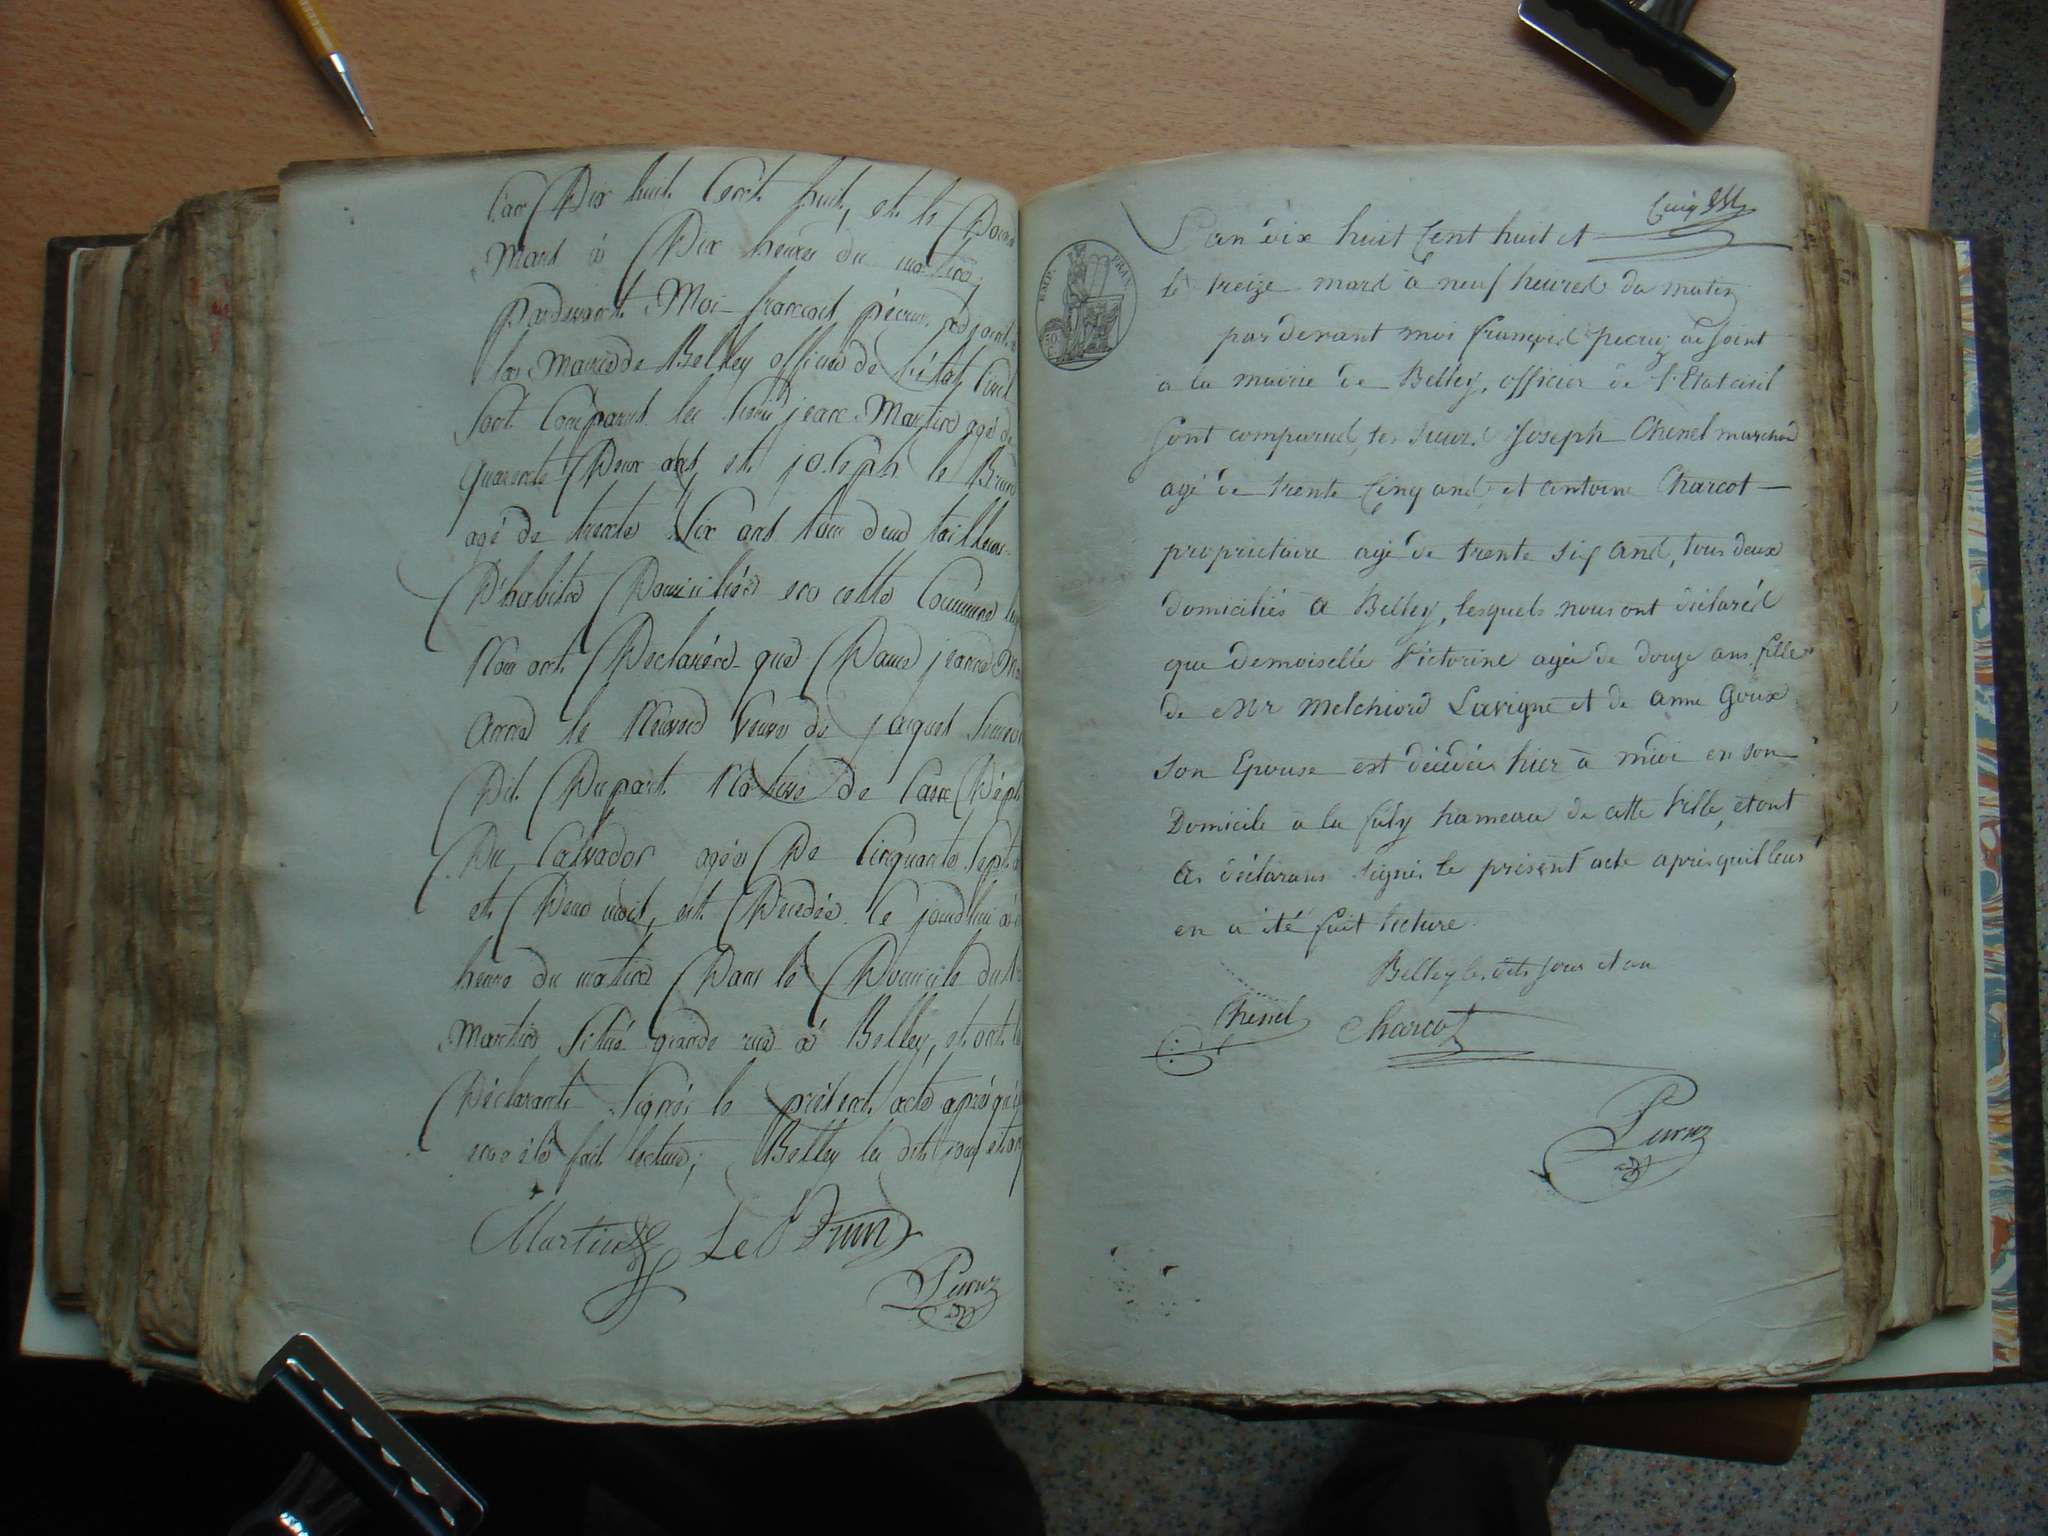 L'an Dix huit Cent huit, et le Douze
Mars à Dix heures du matin,
Pardevant Moi françois pécruz adjoint à
la Mairie de Belley officier de l'état Civil
Sont Comparus les Sieurs jean Martin agé de
quarente Deux ans, et joseph le Brun
agé de trente Six ans tous deux tailleurs
D'habits Domiciliés en cette Commune
Nous ont Declarés que Dame jeanne
Anne le Veuve de jaques
Dit Dupart Native de Caen
Du Calvados agée De Cinquante Sept
et Deux mois, est Décedée le jourdhui à
heure du matin Dans le Domicile du
Martin Situé grande rue à Belley, et ont
Déclarants Signés le présent acte après
en a été fait lecture, Belley les dits jour et an
Martin Le Brun
Pecruz
EMP. FRAN.
L'an dix huit Cent huit et
le treize mars à neuf heures du matin
par devant moi françois pecruz adjoint
a la mairie de Belley, officier de l'Etat civil
sont comparus, les sieurs Joseph Chenel marchand
agé de trente Cinq ans et antoine Charcot
proprietaire agé de trente six ans, tous deux
domiciliés a Belley, lesquels nous ont déclarés
que demoiselle Victorine agée de douze ans fille
de Mr Melchiord Lavigne et de anne Goux
son Epouse est décédée hier à midi en son
Domicile a la hameau de cette Ville, et ont
les déclarans signés le présent acte après quil leur
en a été fait lecture.
Belley les dits jour et an
Chenel Charcot
Pecruz